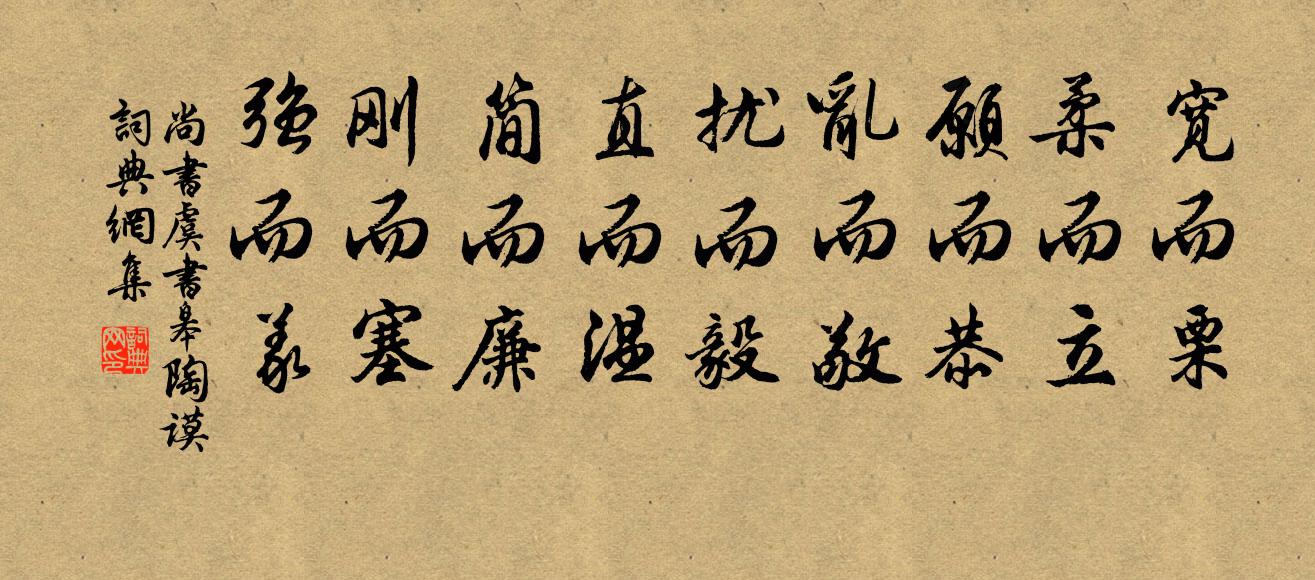 寬而栗
柔而立
願而恭
亂而敬
扰而毅
直而温
簡而廉
刚而塞
強而義
尚書虞書皋陶謨
詞典網集
詞典网印